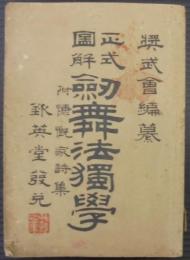 奨武會編纂
正式
圖解
劔舞法獨學
附慷慨家詩集
欽英堂發兌